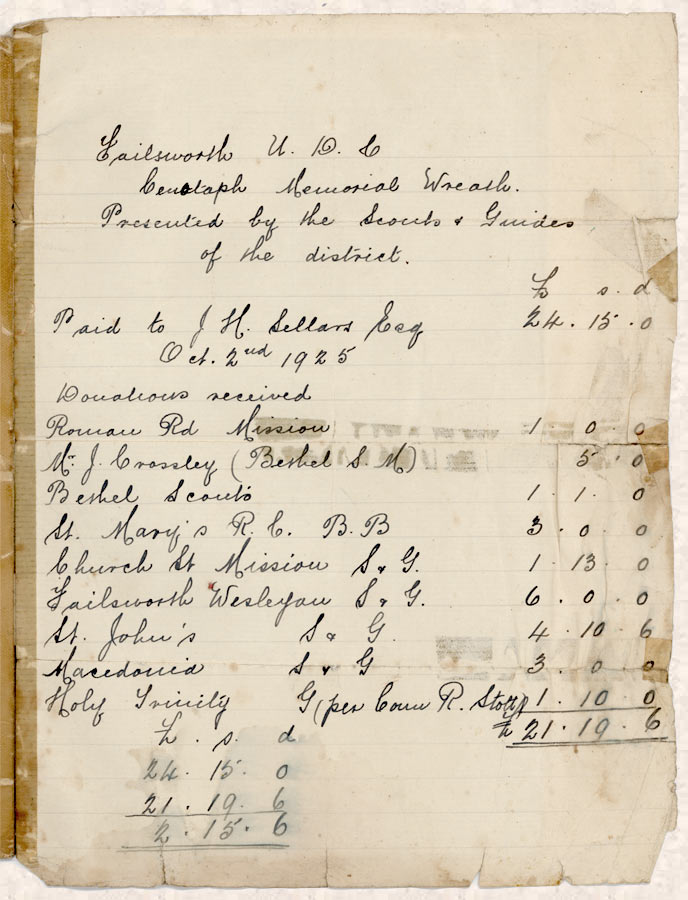 Failsworth U. D. C
Cenotaph Memorial Wreath.
Presented by the Scouts & Guides
of the district.
£ s. d
Paid to J H. Sellars Esq 24. 15. 0
Oct. 2nd 1925
Donations received
Roman Rd Mission 1 0. 0
Mr. J. Crossley (Bethel S. M) 5. 0
Bethel Scouts 1. 1. 0
St. Mary's R. C. B. B 3. 0. 0
Church St Mission S & G. 1. 13. 0
Failsworth Wesleyan S & G. 6. 0. 0
St. John's S & G. 4. 10. 6
Macedonia S & G 3. 0. 0
Holy Trinity G (per Coun R. Stott) 1. 10. 0
£ 21. 19. 6
£. s. d
24. 15. 0
21. 19. 6
2. 15. 6